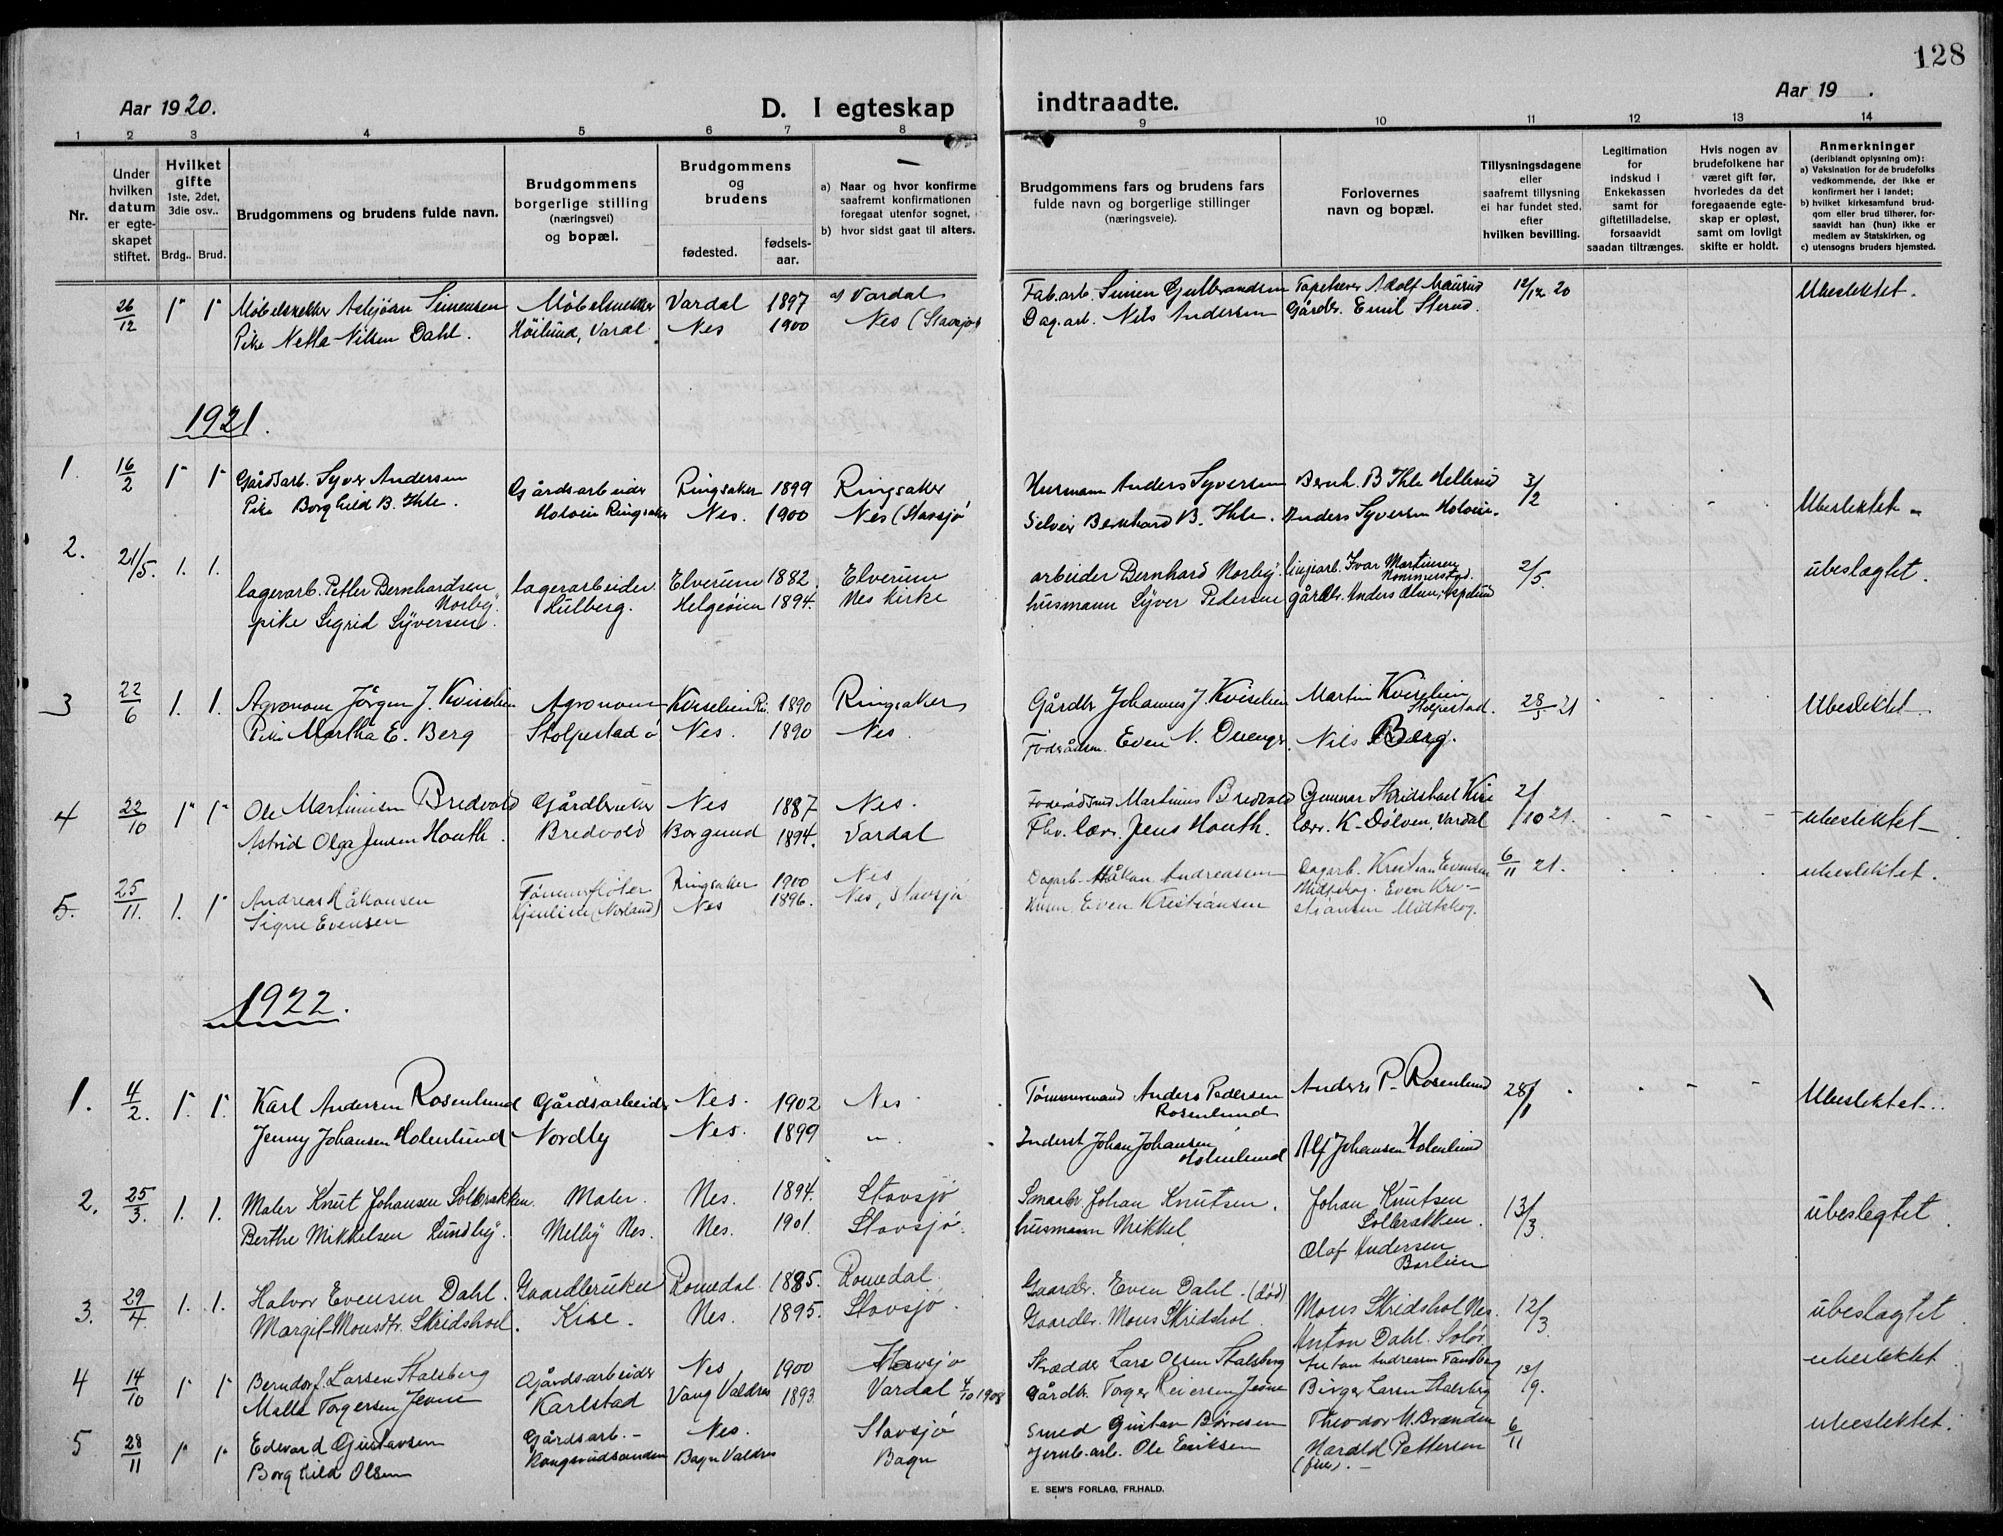 128
Aar 1920.
D. I egteskap indtraadte.
Aar 19 .
1 2 3 4 5 6 7 8 9 10 11 12 13 14
Nr.
Under hvilken datum er egteskapet stiftet.
Hvilket gifte 1ste, 2det, 3die osv..
Brdg.. Brud.
Brudgommens og brudens fulde navn.
Brudgommens borgerlige stilling (næringsvei) og bopæl.
Brudgommens og brudens
fødested. fødselsaar.
a) Naar og hvor konfirme saafremt konfirmationen foregaat utenfor sognet,
b) hvor sidst gaat til alters.
Brudgommens fars og brudens fars fulde navn og borgerlige stillinger (næringsveie).
Forlovernes navn og bopæl.
Tillysningsdagene eller saafremt tillysning ei har fundet sted, efter hvilken bevilling.
Legitimation for indskud i Enkekassen samt for giftetilladelse, forsaavidt saadan tiltrænges.
Hvis nogen av brudefolkene har været gift før, hvorledes da det foregaaende egteskap er opløst, samt om lovligt skifte er holdt.
Anmerkninger (deriblandt oplysning om): a) Vaksination for de brudefolks vedkommende, der ikke er konfirmert her i landet; b) hvilket kirkesamfund brudgom eller brud tilhører, forsaavidt han (hun) ikke er medlem av Statskirken, og c) utensogns bruders hjemsted.
26/12 1 1 Møbelsnekker Asbjørn Simensen Møbelsnekker Vardal 1897 a) Vardal Fab.arb. Simen Gulbrandsen Tapetserer Adolf 12/12 20 Ubeslektet.
Pike Netta Nilsen Dahl. Høilund, Vardal Nes 1900 Nes (Stavsjø Dag.arb. Nils Andersen Gårdbr. Emil Sterud.
1921.
1. 16/2 1 1 Gårdsarb. Syver Andersen Gårdsarbeider Ringsaker 1899 Ringsaker Husmann Anders Syversen Bernh. B. Ihle Hellerud 3/2 Ubeslektet
Pike Borghild B. Ihle. Holoien Ringsaker Nes. 1900 Nes (Stavsjø Selveier Bernhard B. Ihle. Anders Syversen Holoien.
2. 21/5. 1. 1. lagerarb. Petter Bernhardsen lagerarbeider Elverum 1882. Elverum arbeider Bernhard Norby. linjearb. Ivar Martinsen 2/5 ubeslagtet.
Norby. Hulberg. Helgeøien 1894. Nes kirke husmann Syver Pedersen gårdbr. Anders Olsen, Aspelund
pike Sigrid Syversen.
3 22/6 1. 1. Agronom Jørgen J. Kviselien Agronom Kviselien Ri. 1890 Ringsaker Gårdbr Johannes J. Kviselien Martin Kviselien Stolpestad. 28/5 21 Ubeslektet
Pike Martha E. Berg Stolpestad Nes. 1890 Nes. Føderådsm. Even N. Nils Berg.
4 22/10 1 1 Ole Martinisen Bredvold Gårdbruker Nes 1887 Nes. Føderådsmd Martinus Bredvold Gunnar Skridshoel Kise 2/10 21. ubeslektet
Astrid Olga Jensen Houth. Bredvold Borgund 1894. Vardal Fhv. lær. Jens Houth. lær. K. Dølven, Vardal
5. 25/11. 1. 1 Andreas Håkonsen Tømmerfløter Ringsaker 1900 Nes Dagarb. Håkon Andreassen Dagarb. Kristian Evensen 6/11 21. ubeslektet.
Signe Evensen Nes 1896. Nes, Stavsjø Husm. Even Kristiansen Midtskog. Even Kristiansen Midtskog.
1922.
1. 4/2. 1. 1. Karl Andersen Rosenlund Gårdsarbeider Nes. 1902 Nes Tømmermand Anders Pedersen Rosenlund Anders P. Rosenlund 28/1 Ubeslektet.
Jenny Johansen Holenlund Nordby Nes. 1899 " Inderst Johan Johansen Holenlund Alf Johansen Holenlund
2. 25/3. 1. 1. Maler Knut Johansen Solbrækken Maler. Nes. 1894. Stavsjø Johan Knutsen. Johan Knutsen Solbrækken. 13/3. ubeslegtet.
Berthe Mikkelsen Lundby. Melby Nes. Nes. 1901. Stavsjø. husmann Mikkel Olaf Andersen Borlien
3. 29/4. 1. 1. Halvor Evensen Dahl. Gaardbruker Romedal 1885. Romedal Gaardbr. Even Dahl. (død) Mons Skridshol Nes. 12/3. ubeslagtet
Margit Monsdtr. Skridshoel. Kise. Nes. 1895. Stavsjø. Gaardbr. Mons Skridshol. Anton Dahl. Solør.
4 14/10 1 1 Berndorf Larsen Stalsberg Gårdsarbeider Nes 1900 Stavsjø Skrædder Lars Olsen Stalsberg Anton Andresen Tandberg 13/9. ubeslektet
Malla Torgersen Jevne Karlstad Vang Valdres 1893. Vardal 4/10 1908 Gårdbr. Torger Reiersen Jevne Birger Larsen Stalsberg
5 28/11 1 1 Edvard Gustavsen Gårdsarb. Nes. Stavsjø Smed Gustav Børresen Theodor M. Brænden 6/11 ubeslektet.
Borghild Olsen Kongsrudsanden Bagn Valdres Bagn Jernb.arb. Ole Eriksen Harald Pettersen
E. SEM'S FORLAG, FR.HALD.